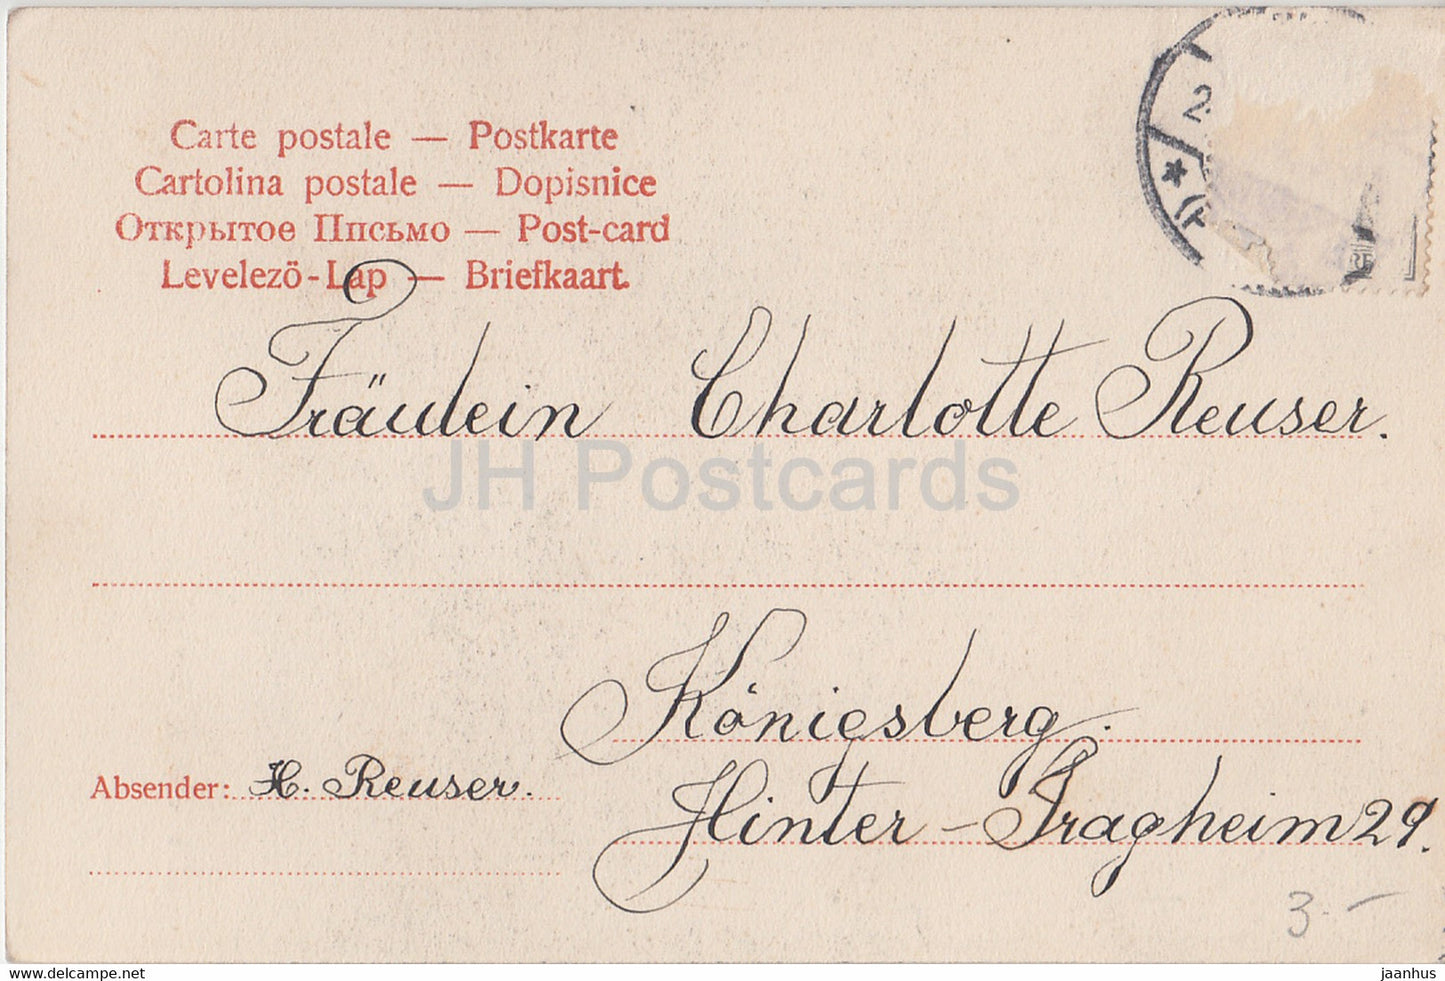 Carte postale — Postkarte
Cartolina postale — Dopisnice
Открытое Ппсьмо — Post-card
Levelezö-Lap — Briefkaart.
Fräulein Charlotte Reuser.
JH Postcards
Königsberg.
Absender: H. Reuser.
Hinter-Tragheim 29.
3.-
www.delcampe.net
jaanhus